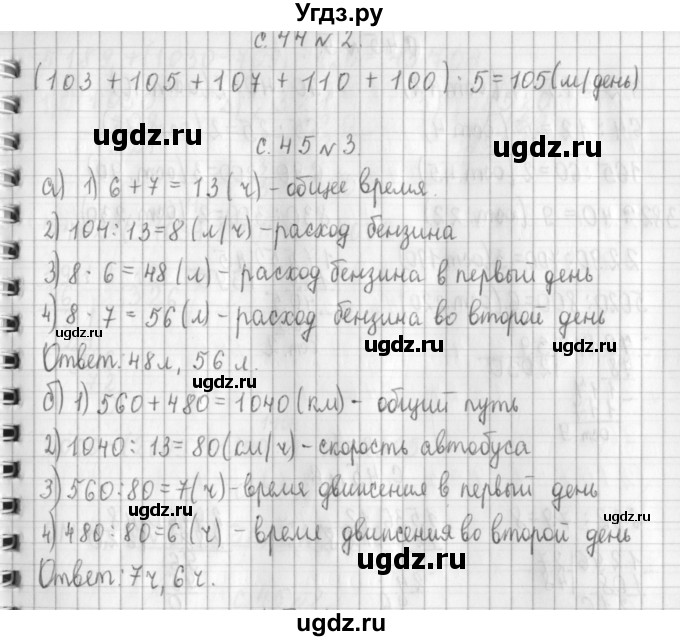 Угдз.ру
с. 44 № 2.
(103 + 105 + 107 + 110 + 100) : 5 = 105 (м/день)
ugdz.ru
ugdz.ru
с. 45 № 3
а) 1) 6 + 7 = 13 (ч) - общее время.
2) 104 : 13 = 8 (л/ч) - расход бензина
3) 8 · 6 = 48 (л) - расход бензина в первый день
4) 8 · 7 = 56 (л) - расход бензина во второй день
ugdz.ru
ugdz.ru
ugdz.ru
Ответ: 48 л, 56 л.
ugdz.ru
б) 1) 560 + 480 = 1040 (км) - общий путь
2) 1040 : 13 = 80 (км/ч) - скорость автобуса
3) 560 : 80 = 7 (ч) - время движения в первый день
ugdz.ru
ugdz.ru
4) 480 : 80 = 6 (ч) - время движения во второй день
ugdz.ru
Ответ: 7 ч, 6 ч.
ugdz.ru